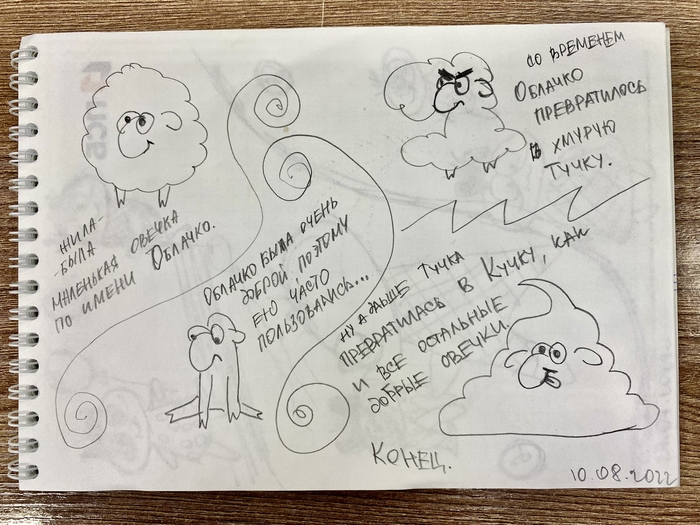 ЖИЛА-
-БЫЛА
МАЛЕНЬКАЯ ОВЕЧКА
ПО ИМЕНИ ОБЛАЧКО.
ОБЛАЧКО БЫЛА ОЧЕНЬ
ДОБРОЙ ПОЭТОМУ
ЕЮ ЧАСТО
ПОЛЬЗОВАЛИСЬ...
СО ВРЕМЕНЕМ
ОБЛАЧКО
ПРЕВРАТИЛОСЬ
В ХМУРУЮ
ТУЧКУ.
НУ А ДАЛЬШЕ ТУЧКА
ПРЕВРАТИЛАСЬ В КУЧКУ, КАК
И ВСЕ ОСТАЛЬНЫЕ
ДОБРЫЕ ОВЕЧКИ.
КОНЕЦ.
10.08.2022